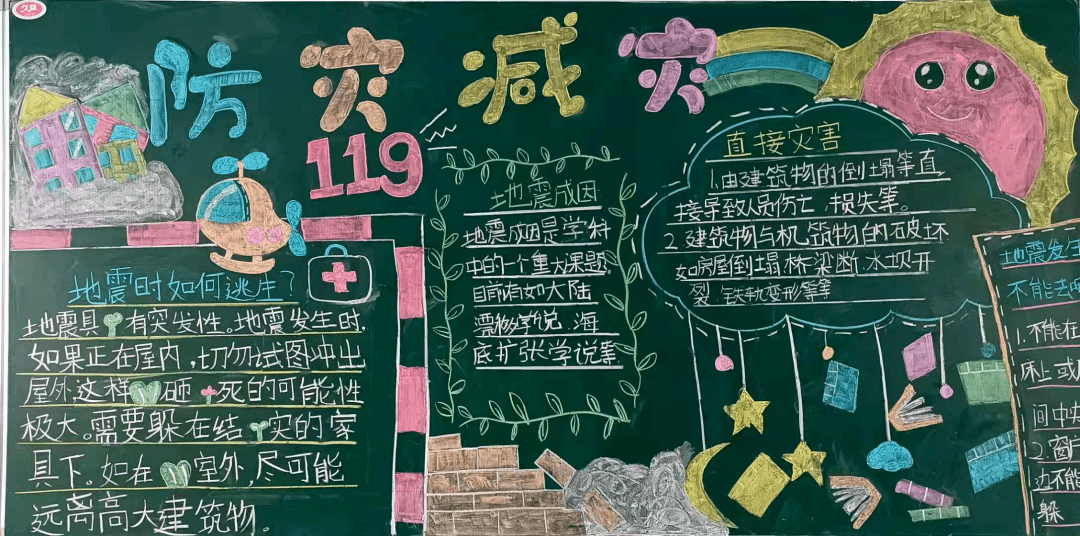 防灾减灾
119
地震时如何逃生?
地震具有突发性。地震发生时,
如果正在屋内,切勿试图冲出
屋外,这样砸死的可能性
极大。需要躲在结实的家
具下。如在室外,尽可能
远离高大建筑物。
地震成因
地震成因是学科
中的一个重大课题,
目前有如大陆
漂移学说、海
底扩张学说等
直接灾害
1.由建筑物的倒塌等直
接导致人员伤亡、损失等。
2.建筑物与机筑物的破坏
如房屋倒塌、桥梁断、水坝开
裂、铁轨变形等等
地震发生
不能去
1.不能在
床上或
间中央
2.窗
边不能
躲